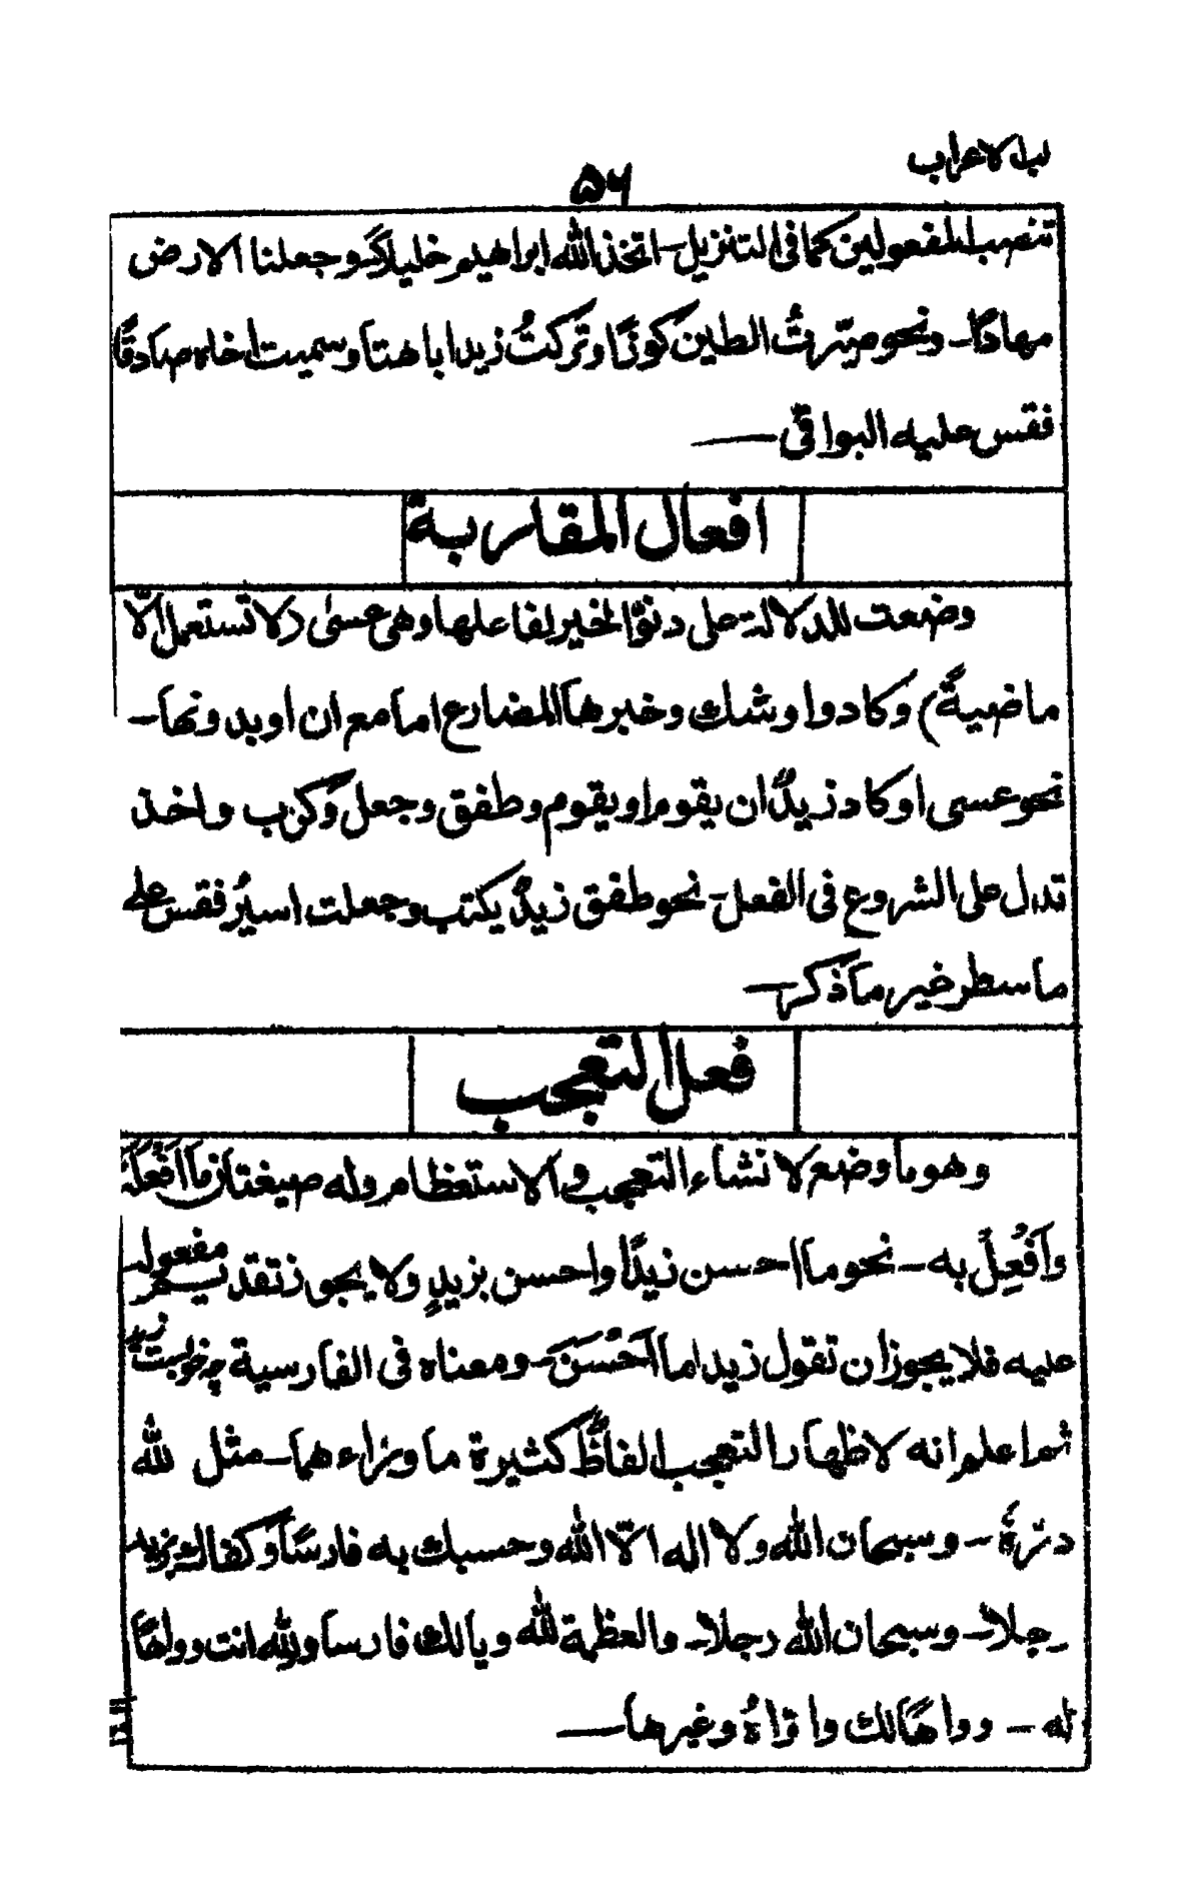 لب الاعراب
۵۶
تنصب المفعولين كما فى التنزيل۔ اتخذ الله ابراهيم خليلاً۔ وجعلنا الارض
مهادًا۔ ونحو صيّرتُ الطين كوزًا وتركتُ زيدا باهتا وسميت اخاه صادقًا
فقس عليه البواقى۔
افعال المقاربة
وضعت للدلالة على دنوّ الخبر لفاعلها وهى عسىٰ (لا تستعمل الّا
ماضيةً) وكاد واوشك وخبرها المضارع اما مع ان او بدونها۔
نحو عسى اوكاد زيدٌ ان يقوم او يقوم وطفق وجعل وكرب واخذ
تدل على الشروع فى الفعل۔ نحو طفق زيدٌ يكتب وجعلت اسيرُ فقس على
ما سطر غير ما ذكر۔
فعل التعجب
وهو ما وضع لانشاء التعجب والاستعظام وله صيغتان ما اَفْعَلَهٗ
واَفْعِلْ به۔ نحو ما احسن زيدًا واحسن بزيدٍ ولا يجوز تقديم مفعوله
عليه فلا يجوز ان تقول زيدا ما اَحْسَنَ۔ ومعناه فى الفارسية چه خوبست زيد
ثم اعلم انه لاظهار التعجب الفاظٌ كثيرة ما وراء هما۔ مثل لله
درّهٗ۔ وسبحان الله ولا اله الّا الله وحسبك به فارسًا وكفاك بزيد
رجلا۔ وسبحان الله رجلا۔ والعظمة لله ويالك فارسا ولله انت وواهًا
له۔ وواهًا لك وغيرها۔